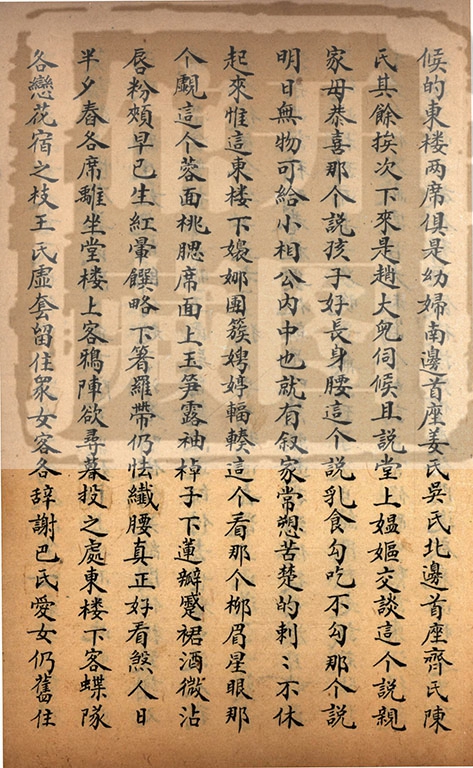 候的東楼两席俱是幼婦南邊首座姜氏吳氏北邊首座齊氏陳
氏其餘挨次下來是趙大兒伺候且説堂上媪嫗交談這个説親
家母恭喜那个説孩子好長身腰這个説乳食勾吃不勾那个説
明日無物可給小相公內中也就有叙家常愬苦楚的剌〻不休
起來惟這東楼下嬝娜團簇娉婷輻輳這个看那个柳眉星眼那
个覷這个蓉面桃腮席面上玉笋露袖棹子下蓮瓣蹙裙酒微沾
唇粉頰早已生紅暈饌略下箸羅帶仍怯纖腰真正好看煞人日
半夕舂各席離坐堂楼上客鴉陣欲尋暮投之處東楼下客蝶隊
各戀花宿之枝王氏虛套留住衆女客各辞謝巴氏愛女仍舊住